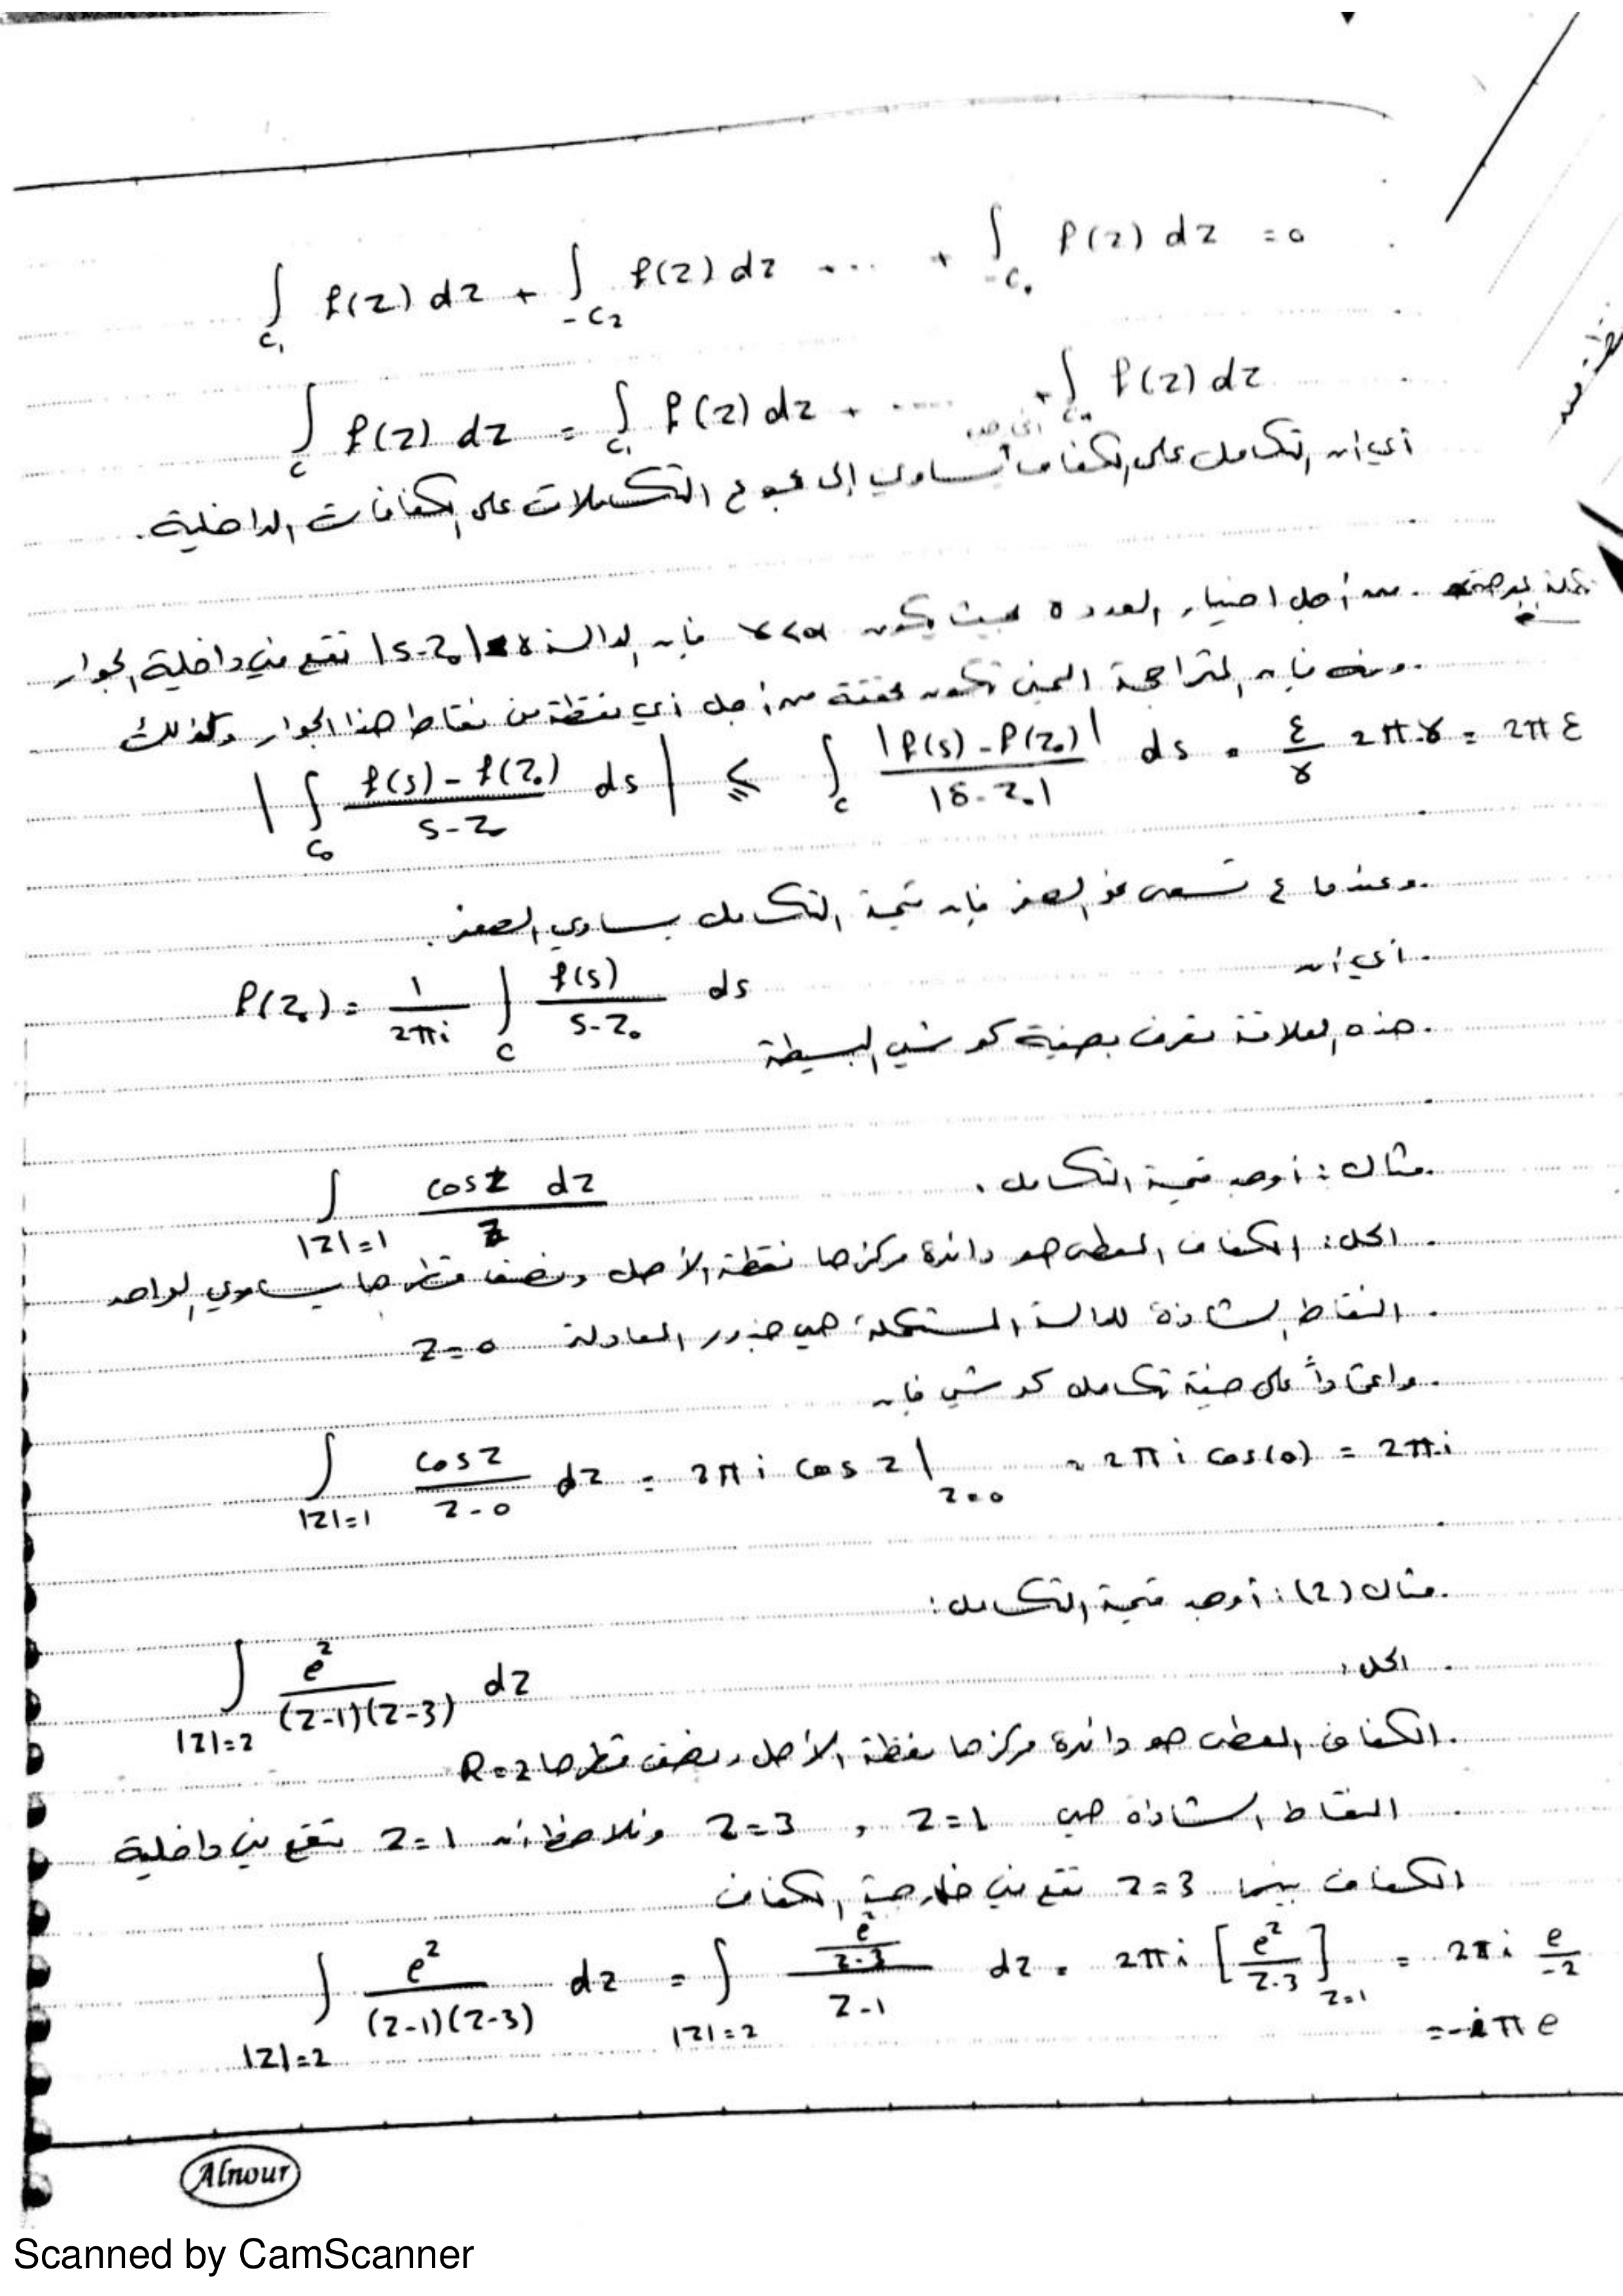 ∫_{c₁} f(z) dz + ∫_{-c₂} f(z) dz ... + ∫_{-cₙ} f(z) dz = 0
∫_c f(z) dz = ∫_{c₁} f(z) dz + ...... + ∫_{cₙ} f(z) dz
أي ان التكامل على الكفاف الخارجي يساوي إلى مجموع التكاملات على الكفافات الداخلية.
من أجل اختيار العدد ꝩ بحيث يكون ꝩ<α فإن الدالة |s-z₀|=ꝩ تقع في داخلية الجوار
ومنه فإن المتراجحة تكون محققة من أجل أي نقطة من نقاط هذا الجوار وكذلك
|∫_{c₀} (f(s) - f(z₀))/(s-z₀) ds| ≤ ∫_c |f(s) - f(z₀)|/|s-z₀| ds = ε/ꝩ 2πꝩ = 2πε
وعندما ε تسعى نحو الصفر فإن قيمة التكامل يساوي الصفر.
أي أن
f(z₀) = 1/2πi ∫_c f(s)/(s-z₀) ds
هذه العلاقة تعرف بصيغة كوشي البسيطة
مثال: أوجد قيمة التكامل.
∫_{|z|=1} cosz dz / z
الحل: الكفاف المعطى هو دائرة مركزها نقطة الأصل ونصف قطرها يساوي الواحد
النقاط الشاذة للدالة المستكملة هي جذور المعادلة z=0
واعتماداً على صيغة تكامل كوشي فإن
∫_{|z|=1} cosz/(z-0) dz = 2πi cos z|_{z=0} = 2πi cos(0) = 2πi
مثال (2): أوجد قيمة التكامل:
الحل:
∫_{|z|=2} e^z/((z-1)(z-3)) dz
الكفاف المعطى هو دائرة مركزها نقطة الأصل ونصف قطرها R=2
النقاط الشاذة هي z=1 , z=3 ونلاحظ أن z=1 تقع في داخلية
الكفاف بينما z=3 تقع في خارجية الكفاف
∫_{|z|=2} e^z/((z-1)(z-3)) dz = ∫_{|z|=2} (e^z/(z-3))/(z-1) dz = 2πi [e^z/(z-3)]_{z=1} = 2πi e/-2
= -iπe
Alnour
Scanned by CamScanner